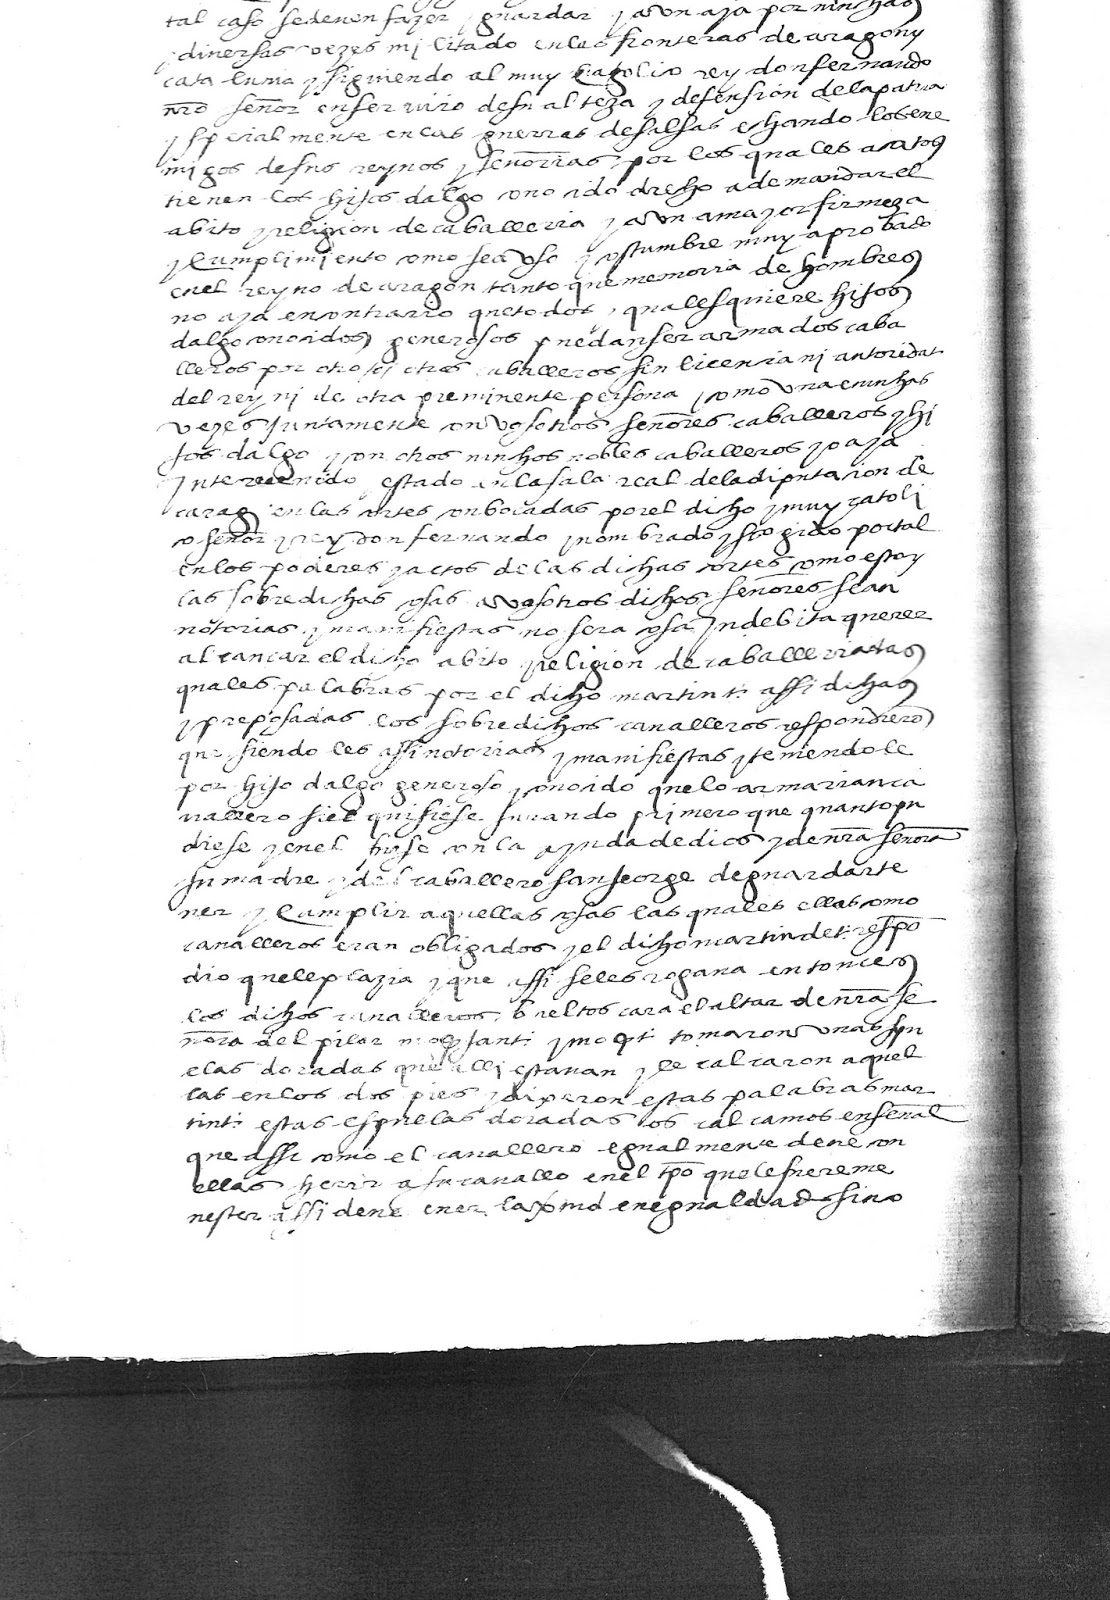 tal caso se deven fazer y guardar y como aya por muchas
y diversas vezes militado en las fronteras de aragon y
cataluniya y siguiendo al muy catolico rey don fernando
nro señor en servicio de su alteza y defension de la patria
y specialmente en las guerras de salsas echando los ene
migos de sus reynos y señorias por los quales acatos
tienen los hijos dalgo conocido drecho a demandar el
abito y religion de caballeria y con ama yor firmeza
y cumplimiento como sea uso y costumbre muy aprobado
en el reyno de aragon tanto que memoria de hombres
no aya en contrario que todos y qualesquiere hijos
dalgo conocidos generosos puedan ser armados caba
lleros por otro o otros caballeros sin licencia ni autoridat
del rey ni de otra preminente persona y como una e muchas
vezes juntamente con vosotros señores caballeros y hi
jos dalgo y con otros muchos nobles caballeros yo aya
intervenido y estado en la sala real de la diputacion de
carag en las cortes conbocadas por el dicho y muy catoli
co señor y rey don fernando y nombrado y scogido por tal
en los poderes y actos de las dichas cortes como esto y
las sobredichas cosas a vosotros dichos señores sean
notorias y manifiestas no sera cosa indebita querer
alcancar el dicho abito y religion de caballeria las
quales palabras por el dicho martin t: assi dichas
y preposadas los sobredichos cavalleros respondieron
que siendo les assi notorias y manifiestas y teniendole
por hijo dalgo generoso y conocido que lo armarian ca
vallero si el quisiese jurando primero que quanto pu
diese y en el fuese con la ayuda de dios y de nra señora
su madre y del caballero san jorge de guardar te
ner y cumplir aquellas cosas las quales ellos como
cavalleros eran obligados y el dicho martin de t: respo
dio que le plazia y que assi se les rogava entonces
los dichos cavalleros bueltos cara el altar de nra se
ñora del pilar mo sant: y mo t: tomaron unas spu
elas doradas que alli estavan y le calcaron aquel
las en los dos pies y dixeron estas palabras mar
tin t: estas espuelas doradas os calcamos en señal
que assi como el cavallero egualmente deve con
ellas herir a su cavallo en el tpo que le fuere me
nester assi deve ener la en egualdad sino